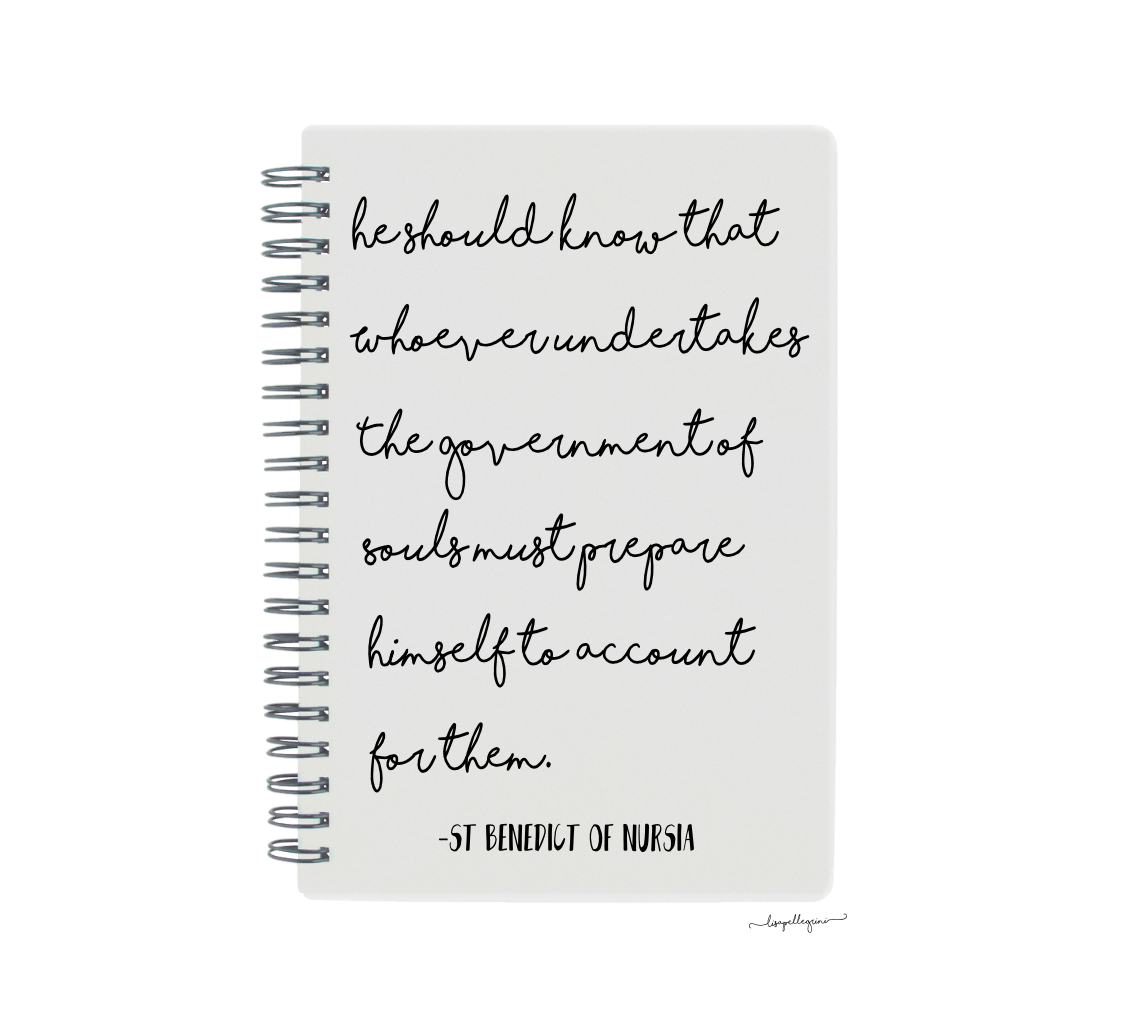 he should know that
whoever undertakes
the government of
souls must prepare
himself to account
for them.
-ST BENEDICT OF NURSIA
lisapellegrini